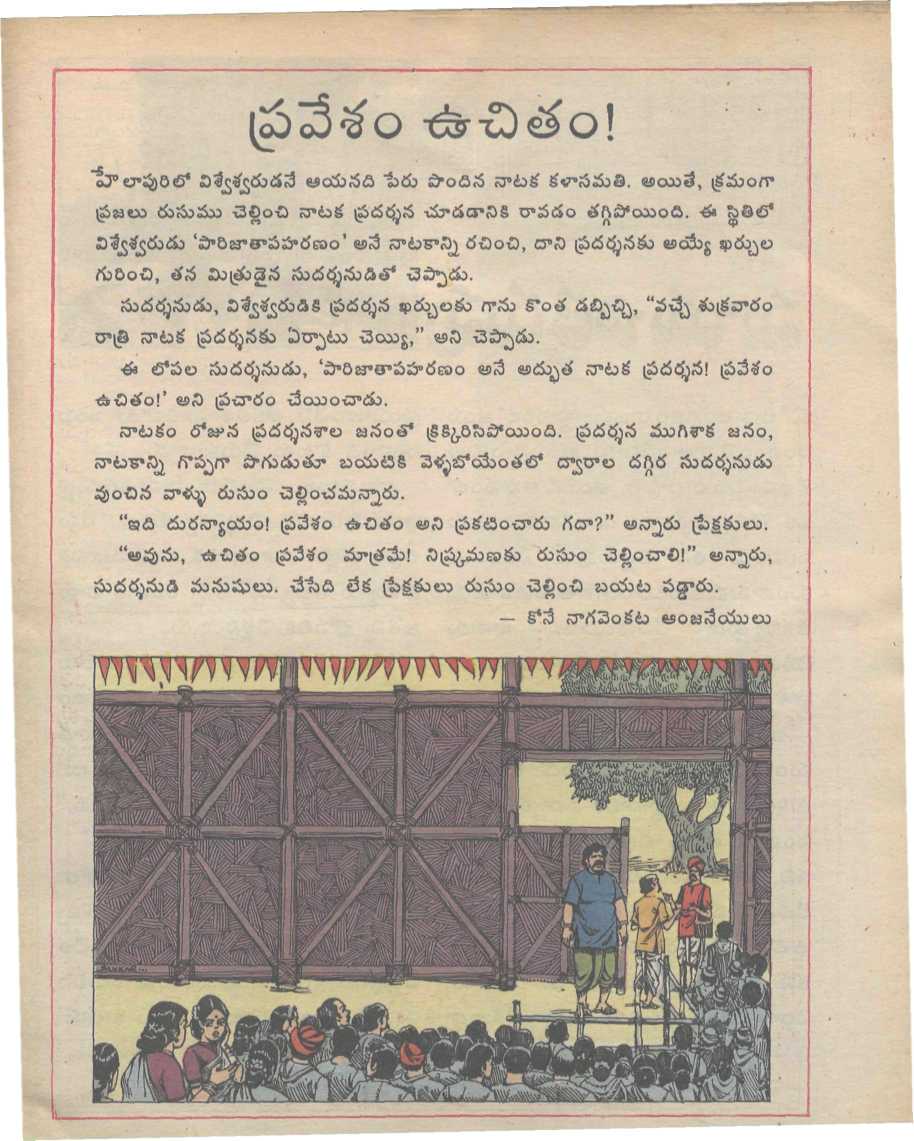 ప్రవేశం ఉచితం!
హేలాపురిలో విశ్వేశ్వరుడనే ఆయనది పేరు పొందిన నాటక కళాసమతి. అయితే, క్రమంగా
ప్రజలు రుసుము చెల్లించి నాటక ప్రదర్శన చూడడానికి రావడం తగ్గిపోయింది. ఈ స్థితిలో
విశ్వేశ్వరుడు ‘పారిజాతాపహరణం’ అనే నాటకాన్ని రచించి, దాని ప్రదర్శనకు అయ్యే ఖర్చుల
గురించి, తన మిత్రుడైన సుదర్శనుడితో చెప్పాడు.
సుదర్శనుడు, విశ్వేశ్వరుడికి ప్రదర్శన ఖర్చులకు గాను కొంత డబ్బిచ్చి, “వచ్చే శుక్రవారం
రాత్రి నాటక ప్రదర్శనకు ఏర్పాటు చెయ్యి,” అని చెప్పాడు.
ఈ లోపల సుదర్శనుడు, ‘పారిజాతాపహరణం అనే అద్భుత నాటక ప్రదర్శన! ప్రవేశం
ఉచితం!’ అని ప్రచారం చేయించాడు.
నాటకం రోజున ప్రదర్శనశాల జనంతో క్రిక్కిరిసిపోయింది. ప్రదర్శన ముగిశాక జనం,
నాటకాన్ని గొప్పగా పొగుడుతూ బయటికి వెళ్ళబోయేంతలో ద్వారాల దగ్గిర సుదర్శనుడు
వుంచిన వాళ్ళు రుసుం చెల్లించమన్నారు.
“ఇది దురన్యాయం! ప్రవేశం ఉచితం అని ప్రకటించారు గదా?” అన్నారు ప్రేక్షకులు.
“అవును, ఉచితం ప్రవేశం మాత్రమే! నిష్క్రమణకు రుసుం చెల్లించాలి!” అన్నారు,
సుదర్శనుడి మనుషులు. చేసేది లేక ప్రేక్షకులు రుసుం చెల్లించి బయట పడ్డారు.
— కోనే నాగవెంకట ఆంజనేయులు